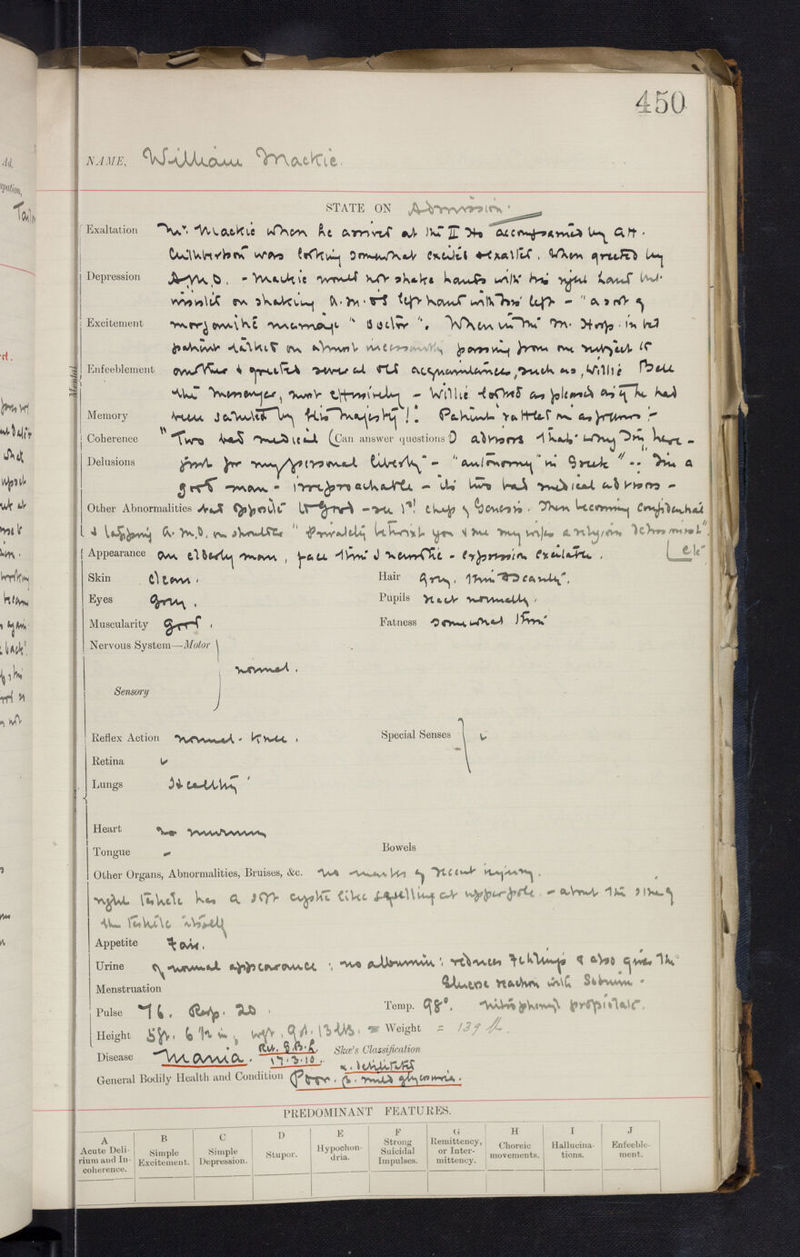 450
NAME, William Mackie.
STATE ON Admission.
Exaltation Mr. Mackie when he arrived at the II Ho accompanied by att.
was looking somewhat excited & exalted. When greeted by
Depression A.M.O. - Mackie would not shake hands with his right hand but
insisted on shaking A.M.O's left hand with his left - "a sort of
Excitement marriage" "Doctor". When in the M. Hosp. in bed
patient talked on almost incessantly passing from one subject to
Enfeeblement another & greeted several old acquaintances, such as, Willie Bell
the messenger, most effusively - Willie looked as pleased as if he had
Memory been saluted by His Majesty!! Patient rattled on as follows :-
Coherence "Two bad medical (Can answer questions) advisors that's why I'm here -
Delusions just for my personal liberty" - "autonomy" in Greek" - : I'm a
good man - irreproachable - its two bad medical advisors -
Other Abnormalities and opposite - see 1st chap of Genesis. Then becoming confidential
& tapping A.M.O. on shoulder "Privately between you & me my wife
Appearance an elderly man, face thin & - expression exalted. etc.
Skin clean.
Hair grey, thin & scanty.
Eyes grey.
Pupils react normally.
Muscularity good.
Fatness somewhat thin
Nervous System—Motor
normal.
Sensory
Reflex Action normal - knee.
Special Senses
Retina
Lungs healthy
Heart no murmurs
Tongue
Bowels
Other Organs, Abnormalities, Bruises, &c. no marks of recent injury.
right testicle has a soft cystic like swelling at upper pole - about the size of
the testicle itself
Appetite fair.
Urine of normal appearance : no albumin : reduces Fehlings & also gives the
Menstruation
Pulse 76. Resp. 20.
Temp. 98°.
Height 5ft. 6½ in, wgt. 9st. 13 lbs. Weight = 139 lb.
Disease Mania. 17.3.10. Skae's Classification
General Bodily Health and Condition Poor. mild glycosuria.
PREDOMINANT FEATURES.
A
Acute Delirium and Incoherence.
B
Simple Excitement.
C
Simple Depression.
D
Stupor.
E
Hypochondria.
F
Strong Suicidal Impulses.
G
Remittency, or Intermittency.
H
Choreic movements.
I
Hallucinations.
J
Enfeeblement.